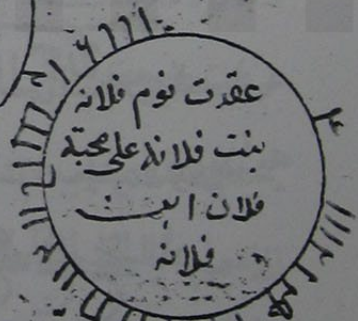 عقدت نوم فلانه
بنت فلانة على محبة
فلان ابن
فلانه